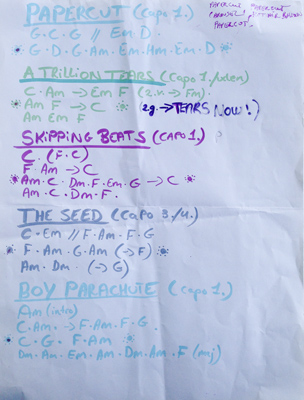 PAPERCUT (Capo 1.)
G·C·G // Em D
G·D·G·Am·Em·Am·Em·D
A TRILLION TEARS (Capo 1./uden)
C·Am → Em F (2.v. → Fm)
Am F → C (2g. → TEARS NOW!)
Am Em F
SKIPPING BEATS (CAPO 1.)
C (F·C)
F·Am → C
Am·C·Dm·F·Em·G → C
Am·C·Dm·F·
THE SEED (Capo 3./4.)
C·Em // F·Am·F·G
F·Am·G·Am (→ F)
Am·Dm (→ G)
BOY PARACHUTE (Capo 1.)
Am (intro)
C·Am· → F·Am·F·G·
C·G·F·Am
Dm·Am·Em·Am·Dm·Am·F (maj)
PAPERCUT PAPERCUT
PAPERCUT
PAPERCUT